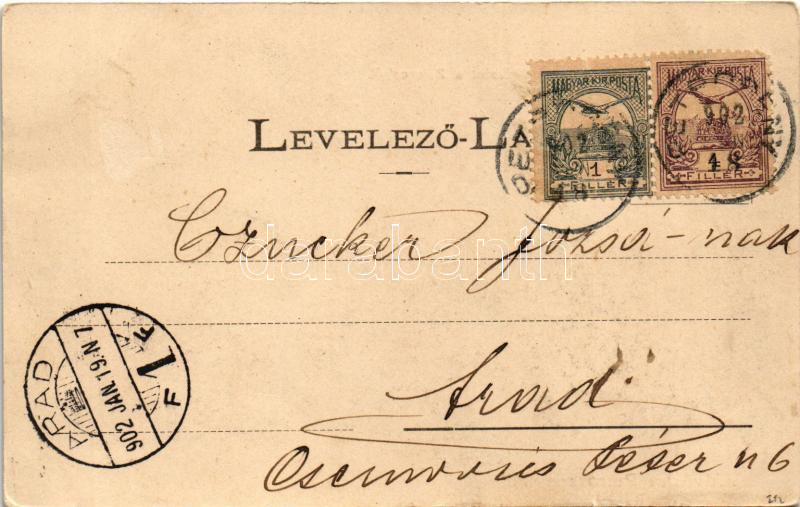 MAGYAR·KIR·POSTA MAGYAR·KIR·POSTA
LEVELEZŐ-LA
1 4
FILLÉR FILLÉR
902 902
Czucker Józsá-nak
darabanth
Arad
ARAD
902 JAN 19. N 7
F 1 F
Péter u 6